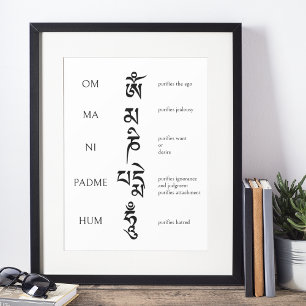 OM ༀ purifies the ego
MA མ purifies jealousy
NI ཎི purifies want
or
desire
PADME པདྨེ purifies ignorance
and judgment
purifies attachment
HUM ཧཱུྃ purifies hatred